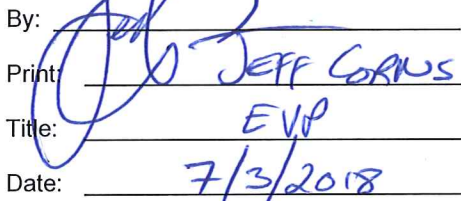 By:
Print: JEFF CORNS
Title: EVP
Date: 7/3/2018